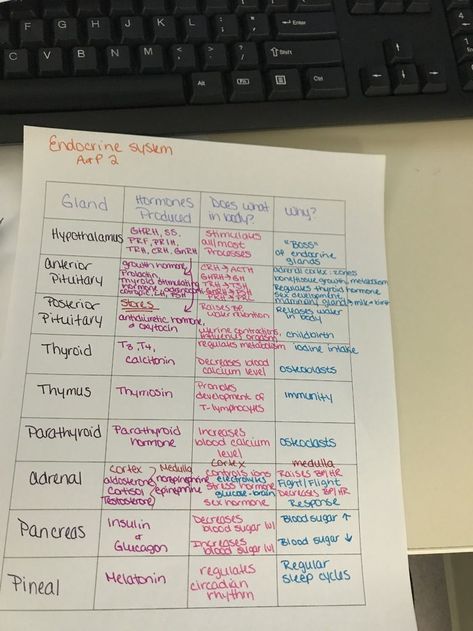 F G H J K L : ; " ' ← Enter
C V B N M < , > . ? / ⇧ Shift
Alt Ctrl
Endocrine system
A+P 2
Gland Hormones Produced Does what in body? Why?
Hypothalamus GHRH, SS, PRF, PRIH, TRH, CRH, GnRH stimulates allmost Processes "Boss" of endocrine glands
anterior Pituitary growth hormone Prolactin Thyroid stimulating hormone CRH → ACTH GHRH → GH TRH → TSH adrenal cortex: zones bone/tissue growth, metabolism Regulates thyroid hormone sex development mammary gland → milk
Posterior Pituitary Stores antidiuretic hormone & oxytocin Raises BP water retention uterine contractions, influences orgasm Releases water in body childbirth
Thyroid T3, T4, calcitonin regulates metabolism Decreases blood calcium level iodine intake osteoblasts
Thymus Thymosin Promotes development of T-lymphocytes immunity
Parathyroid Parathyroid hormone Increases blood calcium level osteoclasts
adrenal cortex aldosterone Cortisol Testosterone Medulla norepinephrine epinephrine cortex controls ions electrolytes stress hormone glucose-brain sex hormone medulla Raises BP/HR Fight/Flight Decreases BP/HR Response
Pancreas Insulin & Glucagon Decreases blood sugar lvl Increases blood sugar lvl Blood sugar ↑ Blood sugar ↓
Pineal Melatonin regulates circadian rhythm Regular sleep cycles